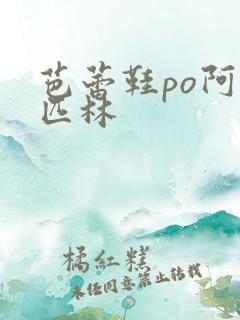 芭蕾鞋po阿
匹林
橘紅糕
未经同意禁止转载